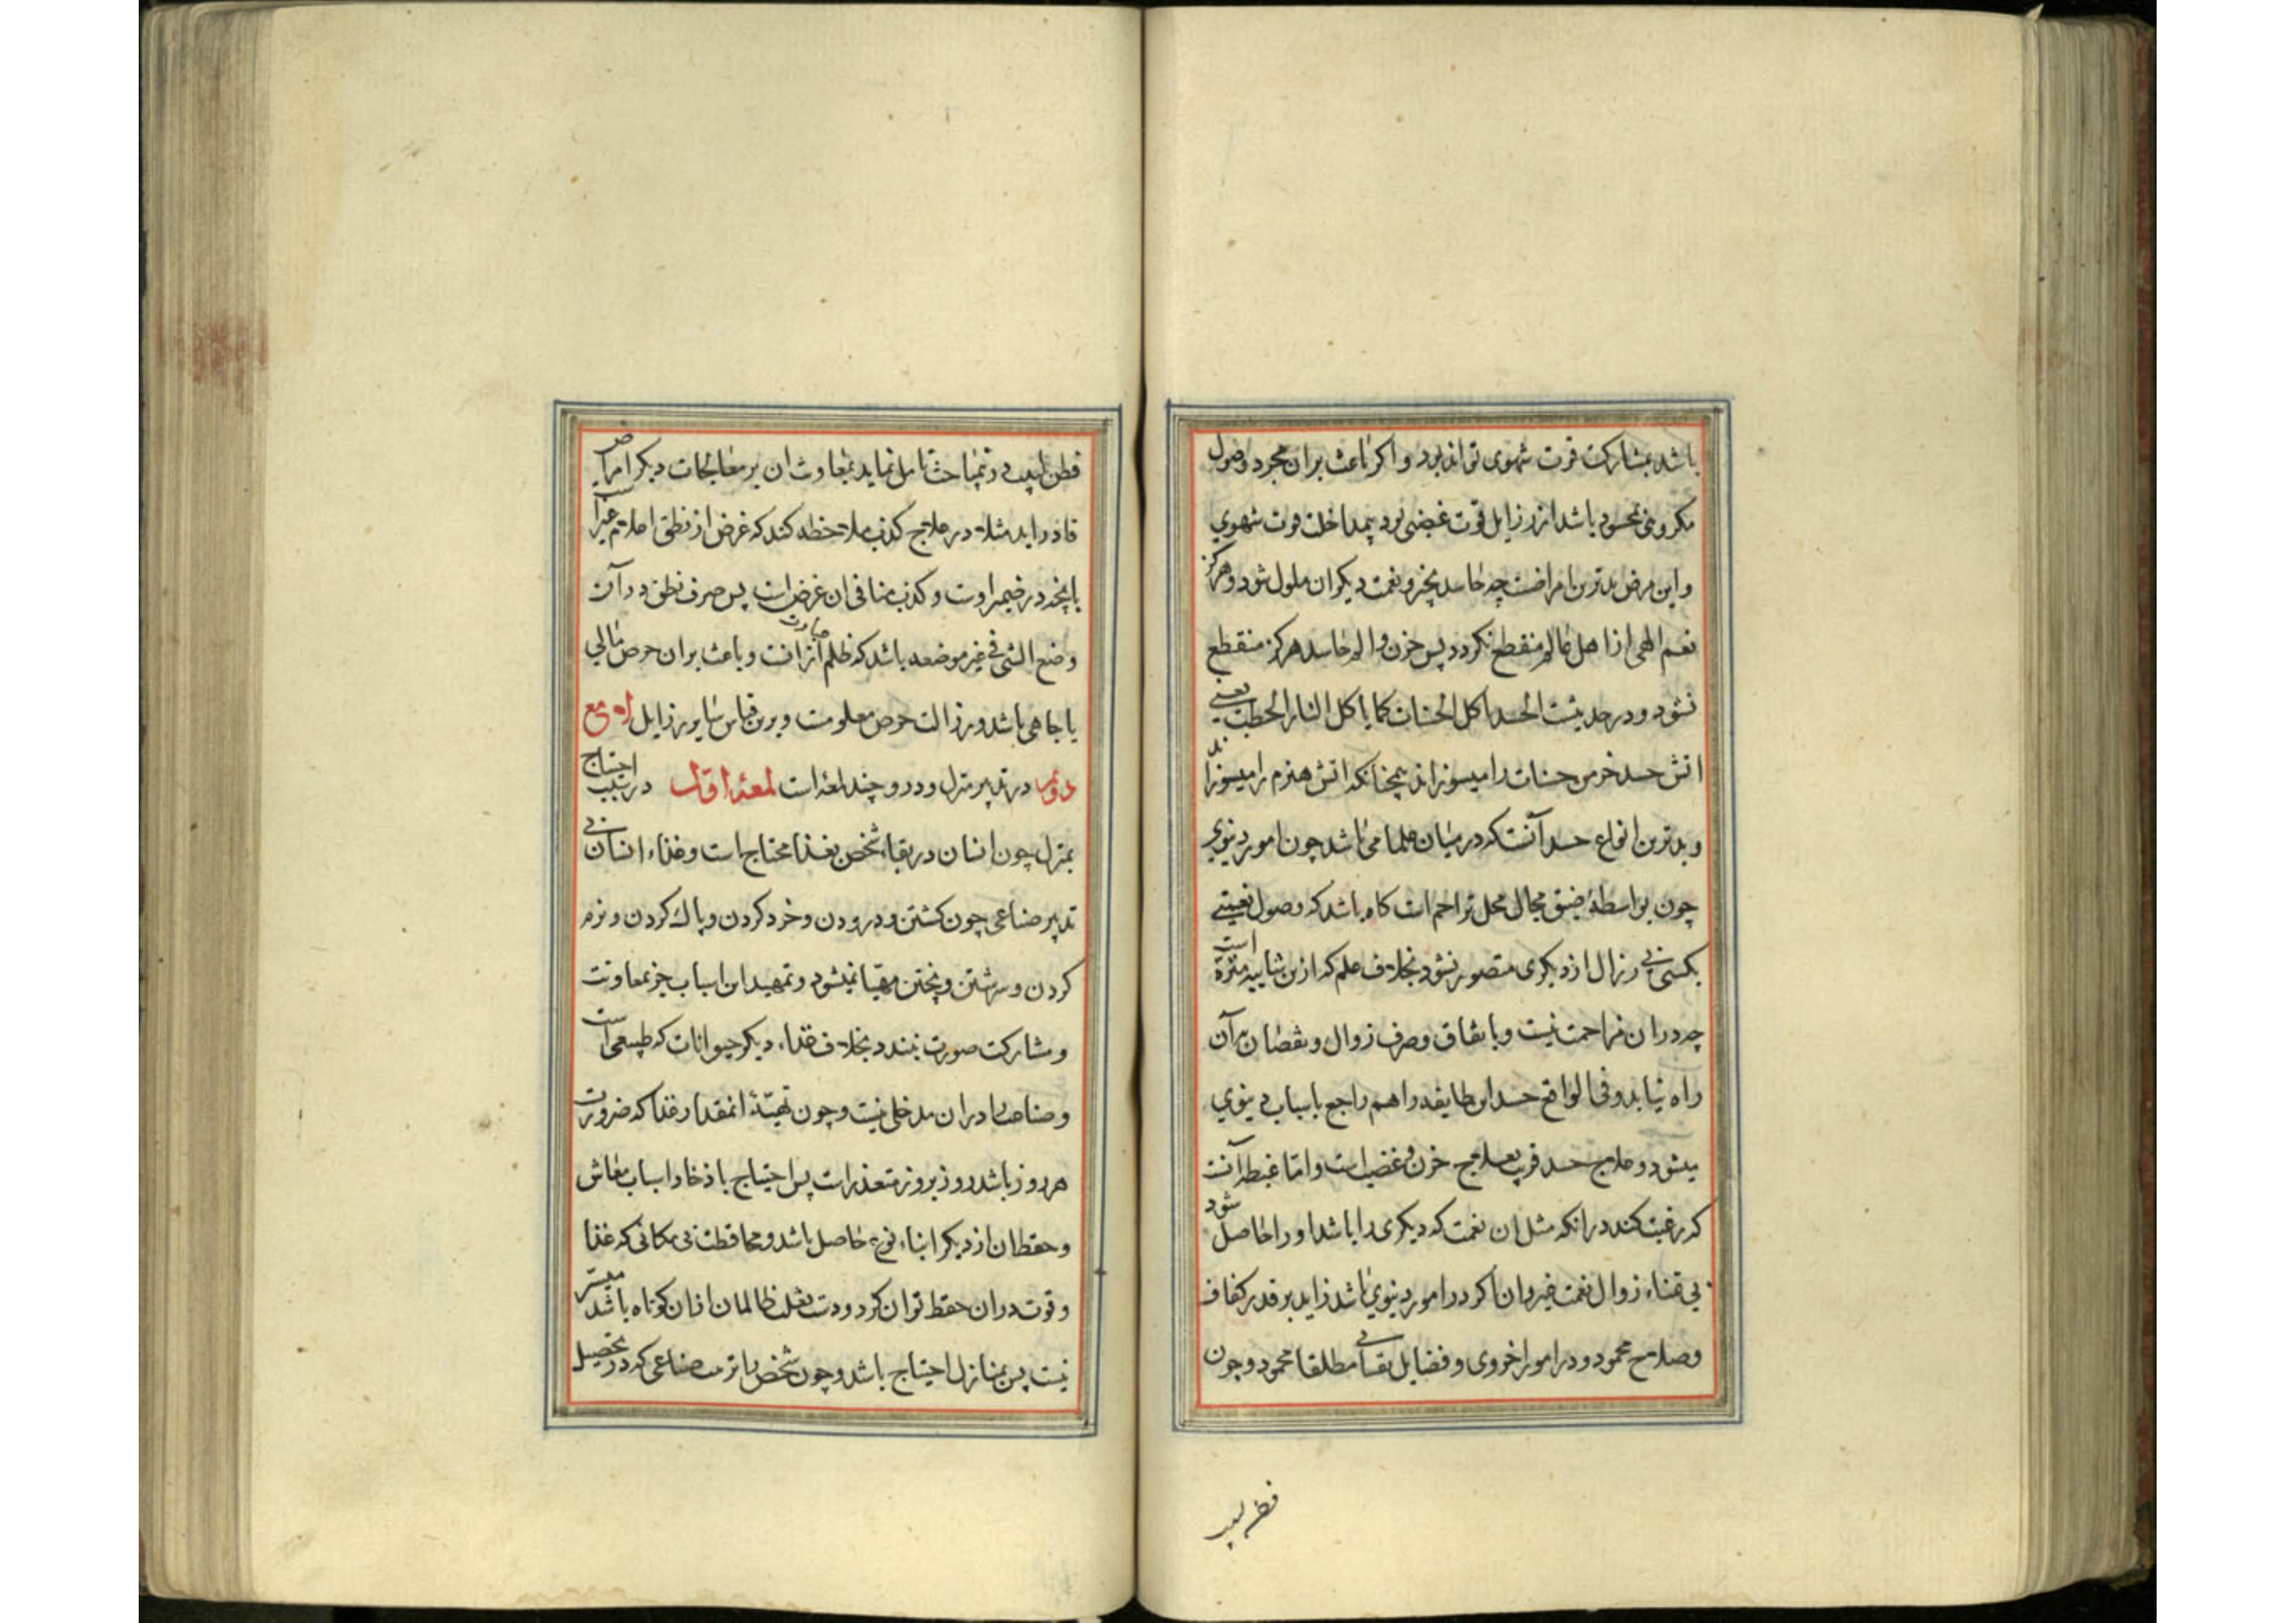 باشد بمشارکت قوت شهوی تواند بود و اکر باعث بران مجرد وصول
مکروهی بمحسود باشد از رزایل قوت غضبی بود بیمداخلت قوت شهوی
و این مرض بدترین امراضست چه حاسد بخیر و نعمت دیکران ملول شود و هرکز
نعم الهی از اهل عالم منقطع نکردد پس حزن و الم حاسد هرکز منقطع
نشود و در حدیثست الحسد یاکل الحسنات کما یاکل النار الحطب یعنی
اتش حسد خرمن حسنات را میسوزاند همچنانکه اتش هیزم را میسوزاند
و بدترین انواع حسد آنست که در میان علما می باشد چون امور دنیوی
چون بواسطهٔ ضیق مجال محل تزاحم است کاه باشد که وصول نعمتی
بکسی بی زوال از دیکری متصور نشود بخلاف علم که ازین شایبه منزه است
چه در ان مزاحمت نیست و بانفاق و صرف زوال و نقصان بر آن
راه نیابد و فی الواقع حسد این طایفه را هم راجع باسباب دنیوی
میشود و علاج حسد قریب بعلاج حزن و غضب است و اما غبطه آنست
که رغبت کند در انکه مثل ان نعمت که دیکری را باشد او را حاصل شود
بی تمناء زوال نعمت غیر و ان اکر در امور دنیوی باشد زاید بر قدر کفاف
و صلاح محمود و در امور اخروی و فضایل نفسانی مطلقا محمود و چون
فطن لبیب
فطن لبیب در تمباحث تامل نماید بمعاونت ان بر معالجات دیکر امراض
قادر اید مثلا در علاج کذب ملاحظه کند که غرض از نطق اعلام غیر است
بانچه در ضمیر اوست و کذب منافی ان غرض است پس صرف نطق در آن
وضع الشی فی غیر موضعه باشد که ظلم عبارت از انست و باعث بران حرص مالی
یا جاهی باشد و رزالت حرص معلومست و برین قیاس سایر رزایل لامع
دویم در تدبیر منزل و درو چند لمعه است لمعهٔ اول در سبب احتیاج
بمنزل چون انسان در بقاء شخص بغذا محتاج است و غذاء انسان بی
تدبیر صناعی چون کشتن و درودن و خرد کردن و پاک کردن و نرم
کردن و سرشتن و پختن مهیا نمیشود و تمهید این اسباب جز بمعاونت
و مشارکت صورت نبندد بخلاف غذاء دیکر حیوانات که طبیعی است
و صناعت را در ان مدخلی نیست و چون تهیئهٔ انمقدار غذا که ضرورت
هر روز باشد روز بروز متعذر است پس احتیاج باذخار اسباب معاش
و حفظ ان از دیکر ابناء نوع حاصل باشد و محافظت بی مکانی که غذا
و قوت در ان حفظ توان کرد و دست تغلب ظالمان از ان کوتاه باشد میسر
نیست پس بمنازل احتیاج باشد و چون شخص را ترتیب صناعی که در تحصیل